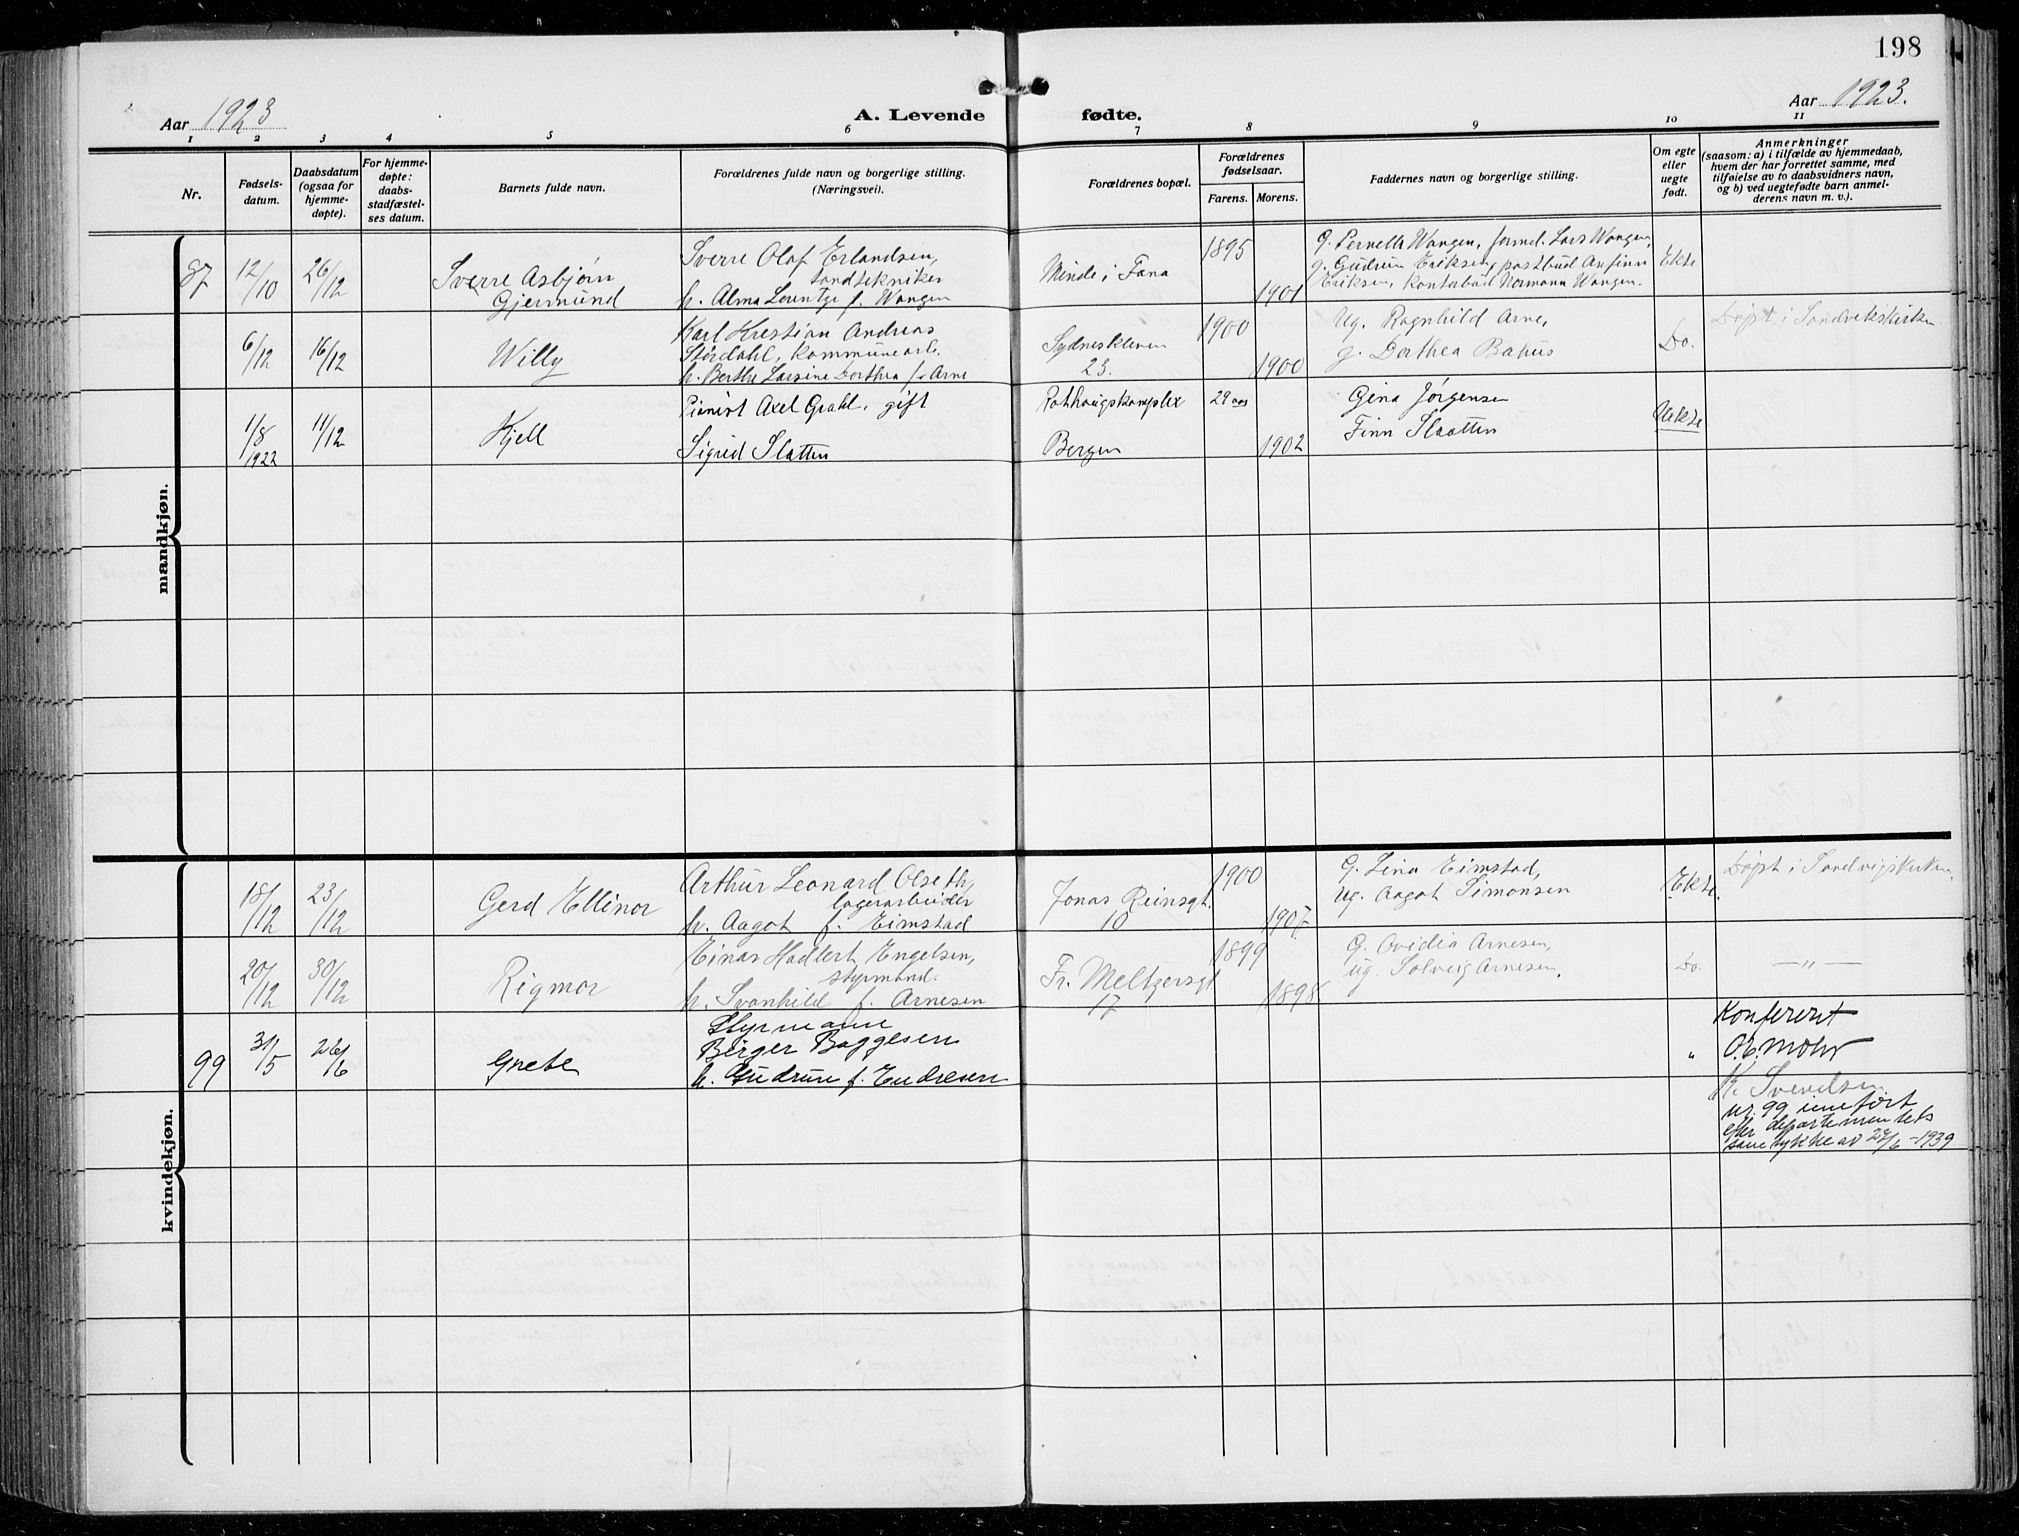 198
Aar 1923
A. Levende fødte.
Aar 1923.
1 2 3 4 5 6 7 8 9 10 11
Nr.
Fødsels-
datum.
Daabsdatum
(ogsaa for
hjemme-
døpte).
For hjemme-
døpte:
daabs-
stadfæstel-
ses datum.
Barnets fulde navn.
Forældrenes fulde navn og borgerlige stilling.
(Næringsvei).
Forældrenes bopæl.
Forældrenes
fødselsaar.
Farens. Morens.
Faddernes navn og borgerlige stilling.
Om egte
eller
uegte
født.
Anmerkninger
(saasom: a) i tilfælde av hjemmedaab,
hvem der har forrettet samme, med
tilføielse av to daabsvidners navn,
og b) ved uegtefødte barn anmel-
derens navn m. v.).
mandkjøn.
87
12/10
26/12
Sverre Asbjørn
Gjermund
Sverre Olaf Erlandsen,
tandtekniker
h. Alma Lorentze f. Wangen
Minde i Fana
1895
1901
G. Pernella Wangen, formd. Lars Wangen,
g. Gudrun Eriksen, postbud Anfinn
Eriksen, kontorbud Normann Wangen.
Ekte
6/12
16/12
Willy
Karl Kristian Andreas
Størdahl, kommunearb.
h. Berthe Larsine Dorthea f. Arne
Sydneskleven
23.
1900
1900
Ug. Ragnhild Arne,
g. Dorthea Bakus
Do.
Døpt i Sandvikskirken
1/8
1922
11/12
Kjell
Pianist Axel Grahl, gift
Sigrid Slatten
Rothaugskomplex
Bergen
29 aar
1902
Gina Jørgensen
Finn Slaatten
Uekte
kvindekjøn.
18/12
23/12
Gerd Ellinor
Arthur Leonard Olseth,
lagerarbeider
h. Aagot f. Eimstad
Jonas Reinsgt.
10
1900
1907
G. Lina Eimstad,
Ug. Aagot Simonsen
Ekte.
Døpt i Sandvigskirken
20/12
30/12
Rigmor
Einar Hadlert Engelsen,
styrmand.
h. Svanhild f. Arnesen
Fr. Meltzersgt
17
1899
1898
G. Ovidia Arnesen,
ug. Solveig Arnesen,
Do.
— " —
99
31/5
26/6
Grete
Styrmann
Birger Baggesen
h. Gudrun f. Endresen
"
Konferert
O.C. Mohr
K. Svendsen
nr. 99 innført
efter departementets
samtykke av 22/6 -1939